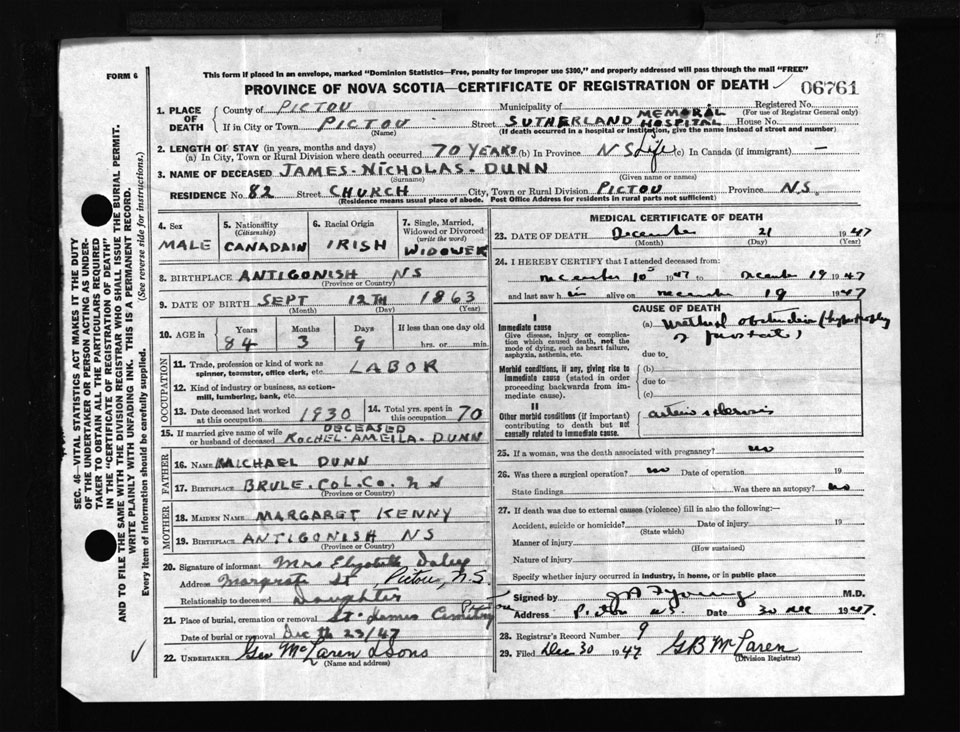 FORM 6
This form if placed in an envelope, marked "Dominion Statistics—Free, penalty for improper use $300," and properly addressed will pass through the mail "FREE"
PROVINCE OF NOVA SCOTIA—CERTIFICATE OF REGISTRATION OF DEATH 06761
SEC. 46—VITAL STATISTICS ACT MAKES IT THE DUTY
OF THE UNDERTAKER OR PERSON ACTING AS UNDER-
TAKER TO OBTAIN ALL THE PARTICULARS REQUIRED
IN THE "CERTIFICATE OF REGISTRATION OF DEATH"
AND TO FILE THE SAME WITH THE DIVISION REGISTRAR WHO SHALL ISSUE THE BURIAL PERMIT.
WRITE PLAINLY WITH UNFADING INK. THIS IS A PERMANENT RECORD.
Every item of information should be carefully supplied. (See reverse side for instructions.)
1. PLACE OF DEATH
County of PICTOU Municipality of Registered No.
(For use of Registrar General only)
If in City or Town PICTOU Street SUTHERLAND MEMORAL HOSPITAL House No.
(Name) (If death occurred in a hospital or institution, give the name instead of street and number)
2. LENGTH OF STAY (in years, months and days)
(a) In City, Town or Rural Division where death occurred 70 YEARS (b) In Province NS Life (c) In Canada (if immigrant) —
3. NAME OF DECEASED JAMES-NICHOLAS-DUNN
(Surname) (Given name or names)
RESIDENCE No. 82 Street CHURCH City, Town or Rural Division PICTOU Province N.S.
(Residence means usual place of abode. Post Office Address for residents in rural parts not sufficient)
4. Sex MALE
5. Nationality (Citizenship) CANADAIN
6. Racial Origin IRISH
7. Single, Married, Widowed or Divorced (write the word) WIDOWER
8. BIRTHPLACE ANTIGONISH NS
(Province or Country)
9. DATE OF BIRTH SEPT 12TH 1863
(Month) (Day) (Year)
10. AGE in Years Months Days If less than one day old
84 3 9 hrs. or min.
OCCUPATION
11. Trade, profession or kind of work as spinner, teamster, office clerk, etc. LABOR
12. Kind of industry or business, as cotton-mill, lumbering, bank, etc.
13. Date deceased last worked at this occupation 1930
14. Total yrs. spent in this occupation 70
15. If married give name of wife or husband of deceased DECEASED ROCHEL-AMEILA-DUNN
FATHER
16. NAME MICHAEL DUNN
17. BIRTHPLACE BRULE-COL.CO. N S
(Province or Country)
MOTHER
18. MAIDEN NAME MARGARET KENNY
19. BIRTHPLACE ANTIGONISH NS
(Province or Country)
20. Signature of informant Mrs Elizabeth Daley
Address Margaret St, Pictou, N.S.
Relationship to deceased Daughter
21. Place of burial, cremation or removal St. James Cemetery
Date of burial or removal Dec th 23/47
22. UNDERTAKER Geo McLaren & Sons
(Name and address)
MEDICAL CERTIFICATE OF DEATH
23. DATE OF DEATH December 21 1947
(Month) (Day) (Year)
24. I HEREBY CERTIFY that I attended deceased from:
December 10 1947 to December 19 1947
and last saw him alive on December 19 1947
CAUSE OF DEATH
I
Immediate cause
Give disease, injury or complication which caused death, not the mode of dying, such as heart failure, asphyxia, asthenia, etc.
(a) urethral obstruction (hypertrophy of prostate)
due to
Morbid conditions, if any, giving rise to immediate cause (stated in order proceeding backwards from immediate cause).
(b)
due to
(c)
II
Other morbid conditions (if important) contributing to death but not causally related to immediate cause.
arterio sclerosis
25. If a woman, was the death associated with pregnancy? no
26. Was there a surgical operation? no Date of operation 19
State findings Was there an autopsy? no
27. If death was due to external causes (violence) fill in also the following:—
Accident, suicide or homicide? Date of injury 19
(State which)
Manner of injury
(How sustained)
Nature of injury
Specify whether injury occurred in industry, in home, or in public place
Signed by M.D.
Address Pictou N.S. Date 30 Dec 1947.
28. Registrar's Record Number 9
29. Filed Dec 30 1947 GB McLaren
(Division Registrar)